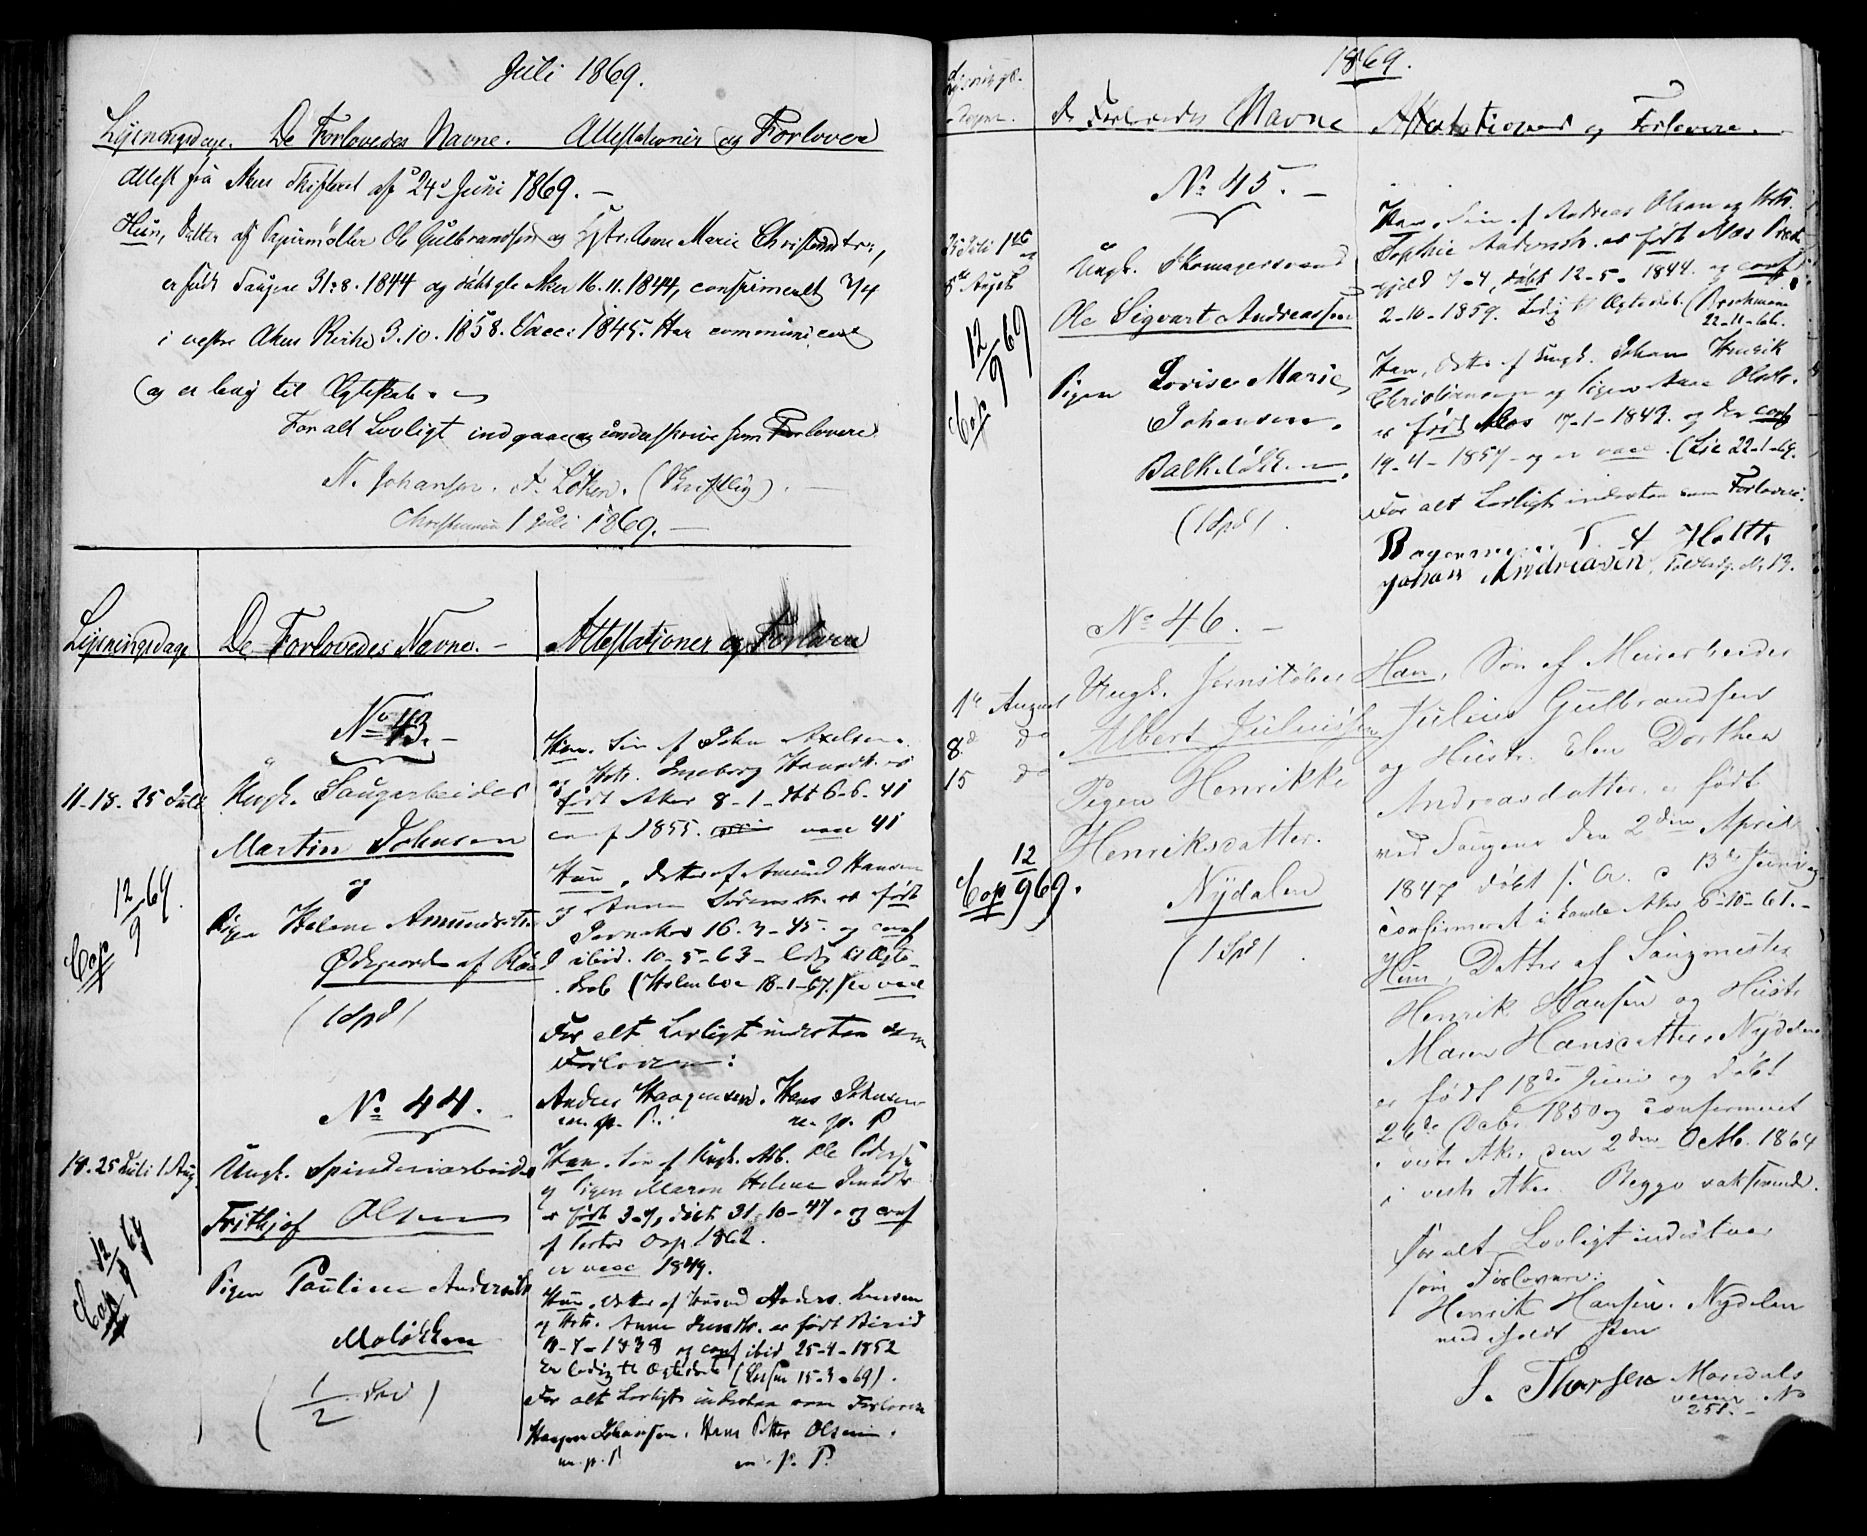 Juli 1869.
Lysningsdage. De Forlovedes Navne. Attestationer og Forlovere
Attest fra Aker Skifteret af 24de Juni 1869. —
Hun, Datter af Papirmøller Ole Gulbrandsen og Hstr. Anne Marie
er født Saugene 31.8.1844 og døbt Aker 16.11.1844, confirmeret
i vestre Aker Kirke 3.10.1858. Vacc: 1845. Har communiceret
og er ledig til Ægteskab. —
For alt Lovligt indgaae og underskrive som Forlovere
N. Johansen. A. Løken. (Skriftlig). —
Christiania 1 Juli 1869. —
Lysningsdage De Forlovedes Navne. — Attestationer og Forlovere
No 43. —
11-18. 25 Juli
Ungk. Saugarbeider
Martin Johnsen
og
Pigen Helene Amundsdtr
Ødegaarden af
(1 Spd)
Cop 12/9 69.
Han. Søn af John Axelsen
og Hstr. Ingeborg er
født Aker 8-1- dbt 6-6-41
conf 1855. vacc 41
Hun, Datter af Amund Hansen
og Anne er født
Jevnaker 16-3-45- og conf
ibid. 10-5-63- ledig til Ægte-
skab (Holmboe 18-1-67.) er vacc
For alt Lovligt indestaa som
Forlovere:
Anders Haagensen. Hans Johnsen
m. p. P. m. p. P
No 44.
18. 25 Juli 1 Aug
Ungk. Spinderiarbeider
Frithjof Olsen
Pigen Pauline Andersdtr
Moløkken
(1/2 Spd)
Cop 12/9 69
Han. Søn af Ungk. Arb. Ole
og Pigen Maren Helene
er født 3-7, døbt 31-10-47. og conf
af Provst 1862.
er vacc 1849.
Hun. Datter af Anders
og Hstr. Anne er født Birid
-7-1838 og conf ibid 25-4-1852
Er ledig til Ægteskab ( 15-3-69).
For alt Lovligt indestaa som Forlovere
Haagen Johansen. Hans Petter Olsen.
m. p. P m. p. P.
1869.
De Forlovedes Navne Attestationer og Forlovere.
No 45. —
25 Juli 1ste og
8de August
Ungk. Skomagersvend
Ole Sigvart Andreassen
Pigen Lovise Marie
Johansen.
Balkeløkken.
(1 Spd).
Cop 12/9 69
Han, Søn af Andreas Olsen og Hstr.
Sophie er født Næs Præste-
gjeld 7-4, døbt 12-5-1844. og conf
2-10-1859. Ledig til Ægteskab. (
22-11-66.
Hun, Datter af Ungk. Johan Henrik
Christiansen og Pigen
er født 17-1-1843. og der conf
19-4-1857- og er vacc. ( 22-1-69.
For alt Lovligt indestaa som Forlovere:
T. A. Holtt.
Johan Andreasen, No 13.
No 46. —
1ste August
8de do
15 do
Ungk. Jernstøber
Albert Juliussen
Pigen Henrikke
Henriksdatter.
Nydalen
(1 Spd).
Cop 12/9 69.
Han, Søn af Murarbeider
Julius Gulbrandsen
og Hustr. Elen Dorthea
Andreasdatter, er født
ved Saugene den 2den April
1847 døbt s. A. d 13de Juni og
confirmeret i Aker 6-10-61. —
Hun, Datter af Saugmester
Henrik Hansen og Hustr
Maren Hansdatter Nydalen
er født 18de Juni og døbt
26de 1850 og confirmeret
i vestr Aker den 2den Octbr. 1864
i vestr Aker. Begge vakserede.
For alt Lovligt indestaar
som Forlovere:
Henrik Hansen. Nydalen
med holdt Pen
J. Thorsen Maridals
veien No
251. —